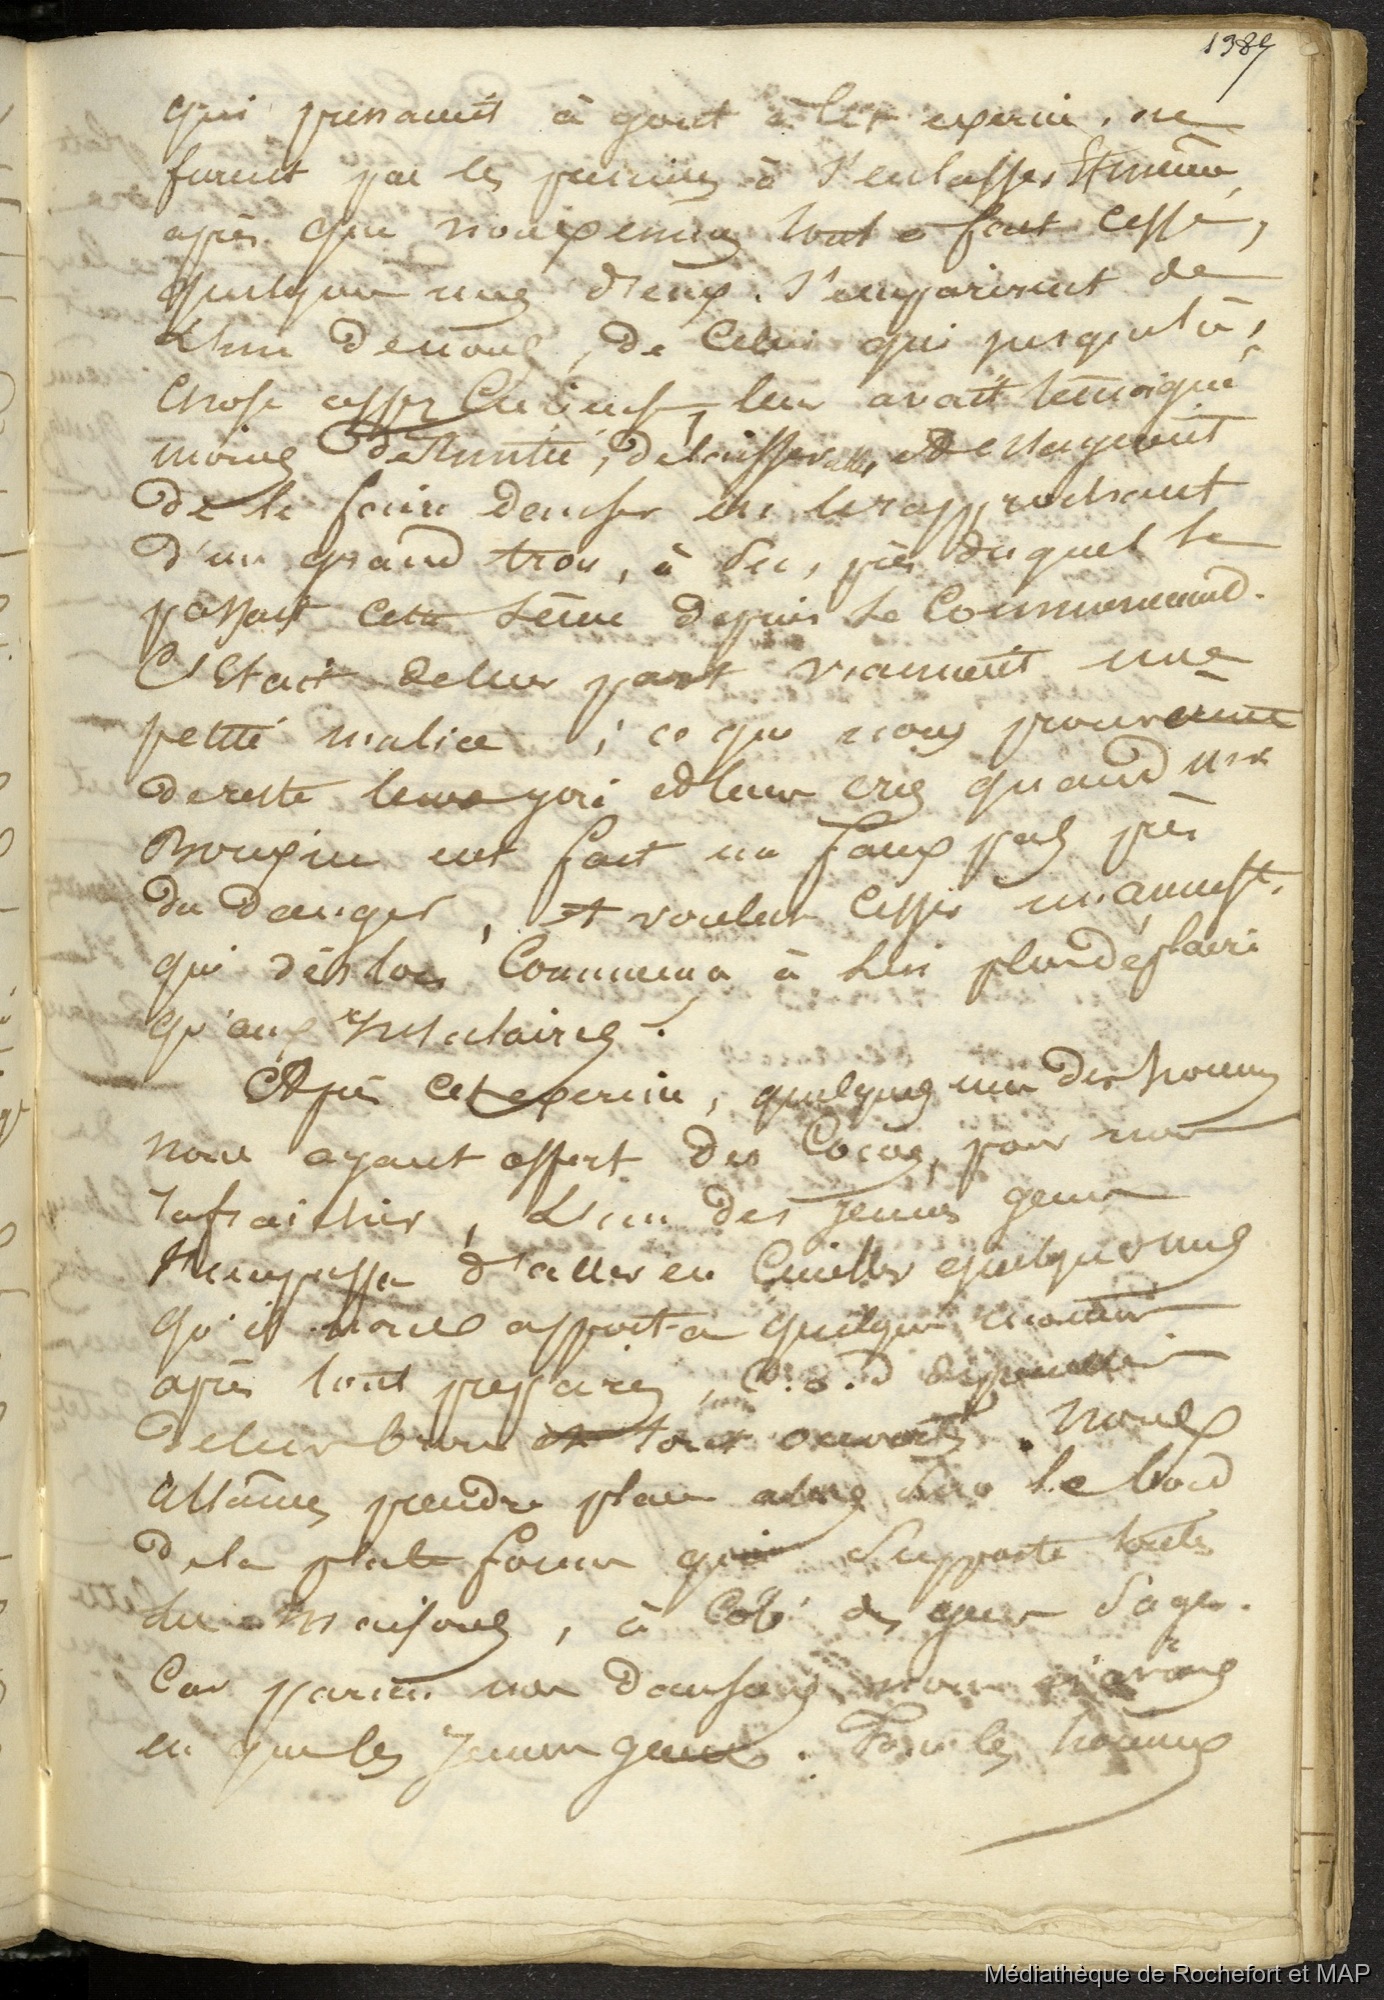 1389
qui prenaient à gout à cet exercice, ne
furent pas les premiers à s'en lasser. Et même
après que nous eumes tout a fait cessé,
quelques unes d'eux s'emparèrent de
l'un de nous, de celui qui jusqu'à là,
chose assez curieuse, leur avait témoigné
moins
de le faire danser en le rapprochant
d'un grand trou, à sec, près duquel se
passait cette scène depuis le commencement.
C'était de leur part vraiment une
petite malice ; ce que nous prouvèrent
de reste leurs yeux et leurs cris quand Mr
Bonpin eut fait un faux pas près
du danger, et voulut cesser un
qui dès lors commença à lui plus déplaire
qu'aux insulaires.
Après cet exercice, quelques uns des hommes
nous ayant offert des Cocos, pour nous
rafraichir, l'un des jeunes gens
s'empressa d'aller en cueillir quelques uns
qu'il nous apporta quelques moments
après tout préparés, c.a.d dépouillés
de leur brou et tout ouverts. Nous
allâmes prendre place alors sur le bord
de la plate forme qui supporte toutes
les maisons, à côté des gens sages.
Car parmi nos danseurs nous n'avions
eu que les jeunes gens. Tous les hommes
Médiathèque de Rochefort et MAP